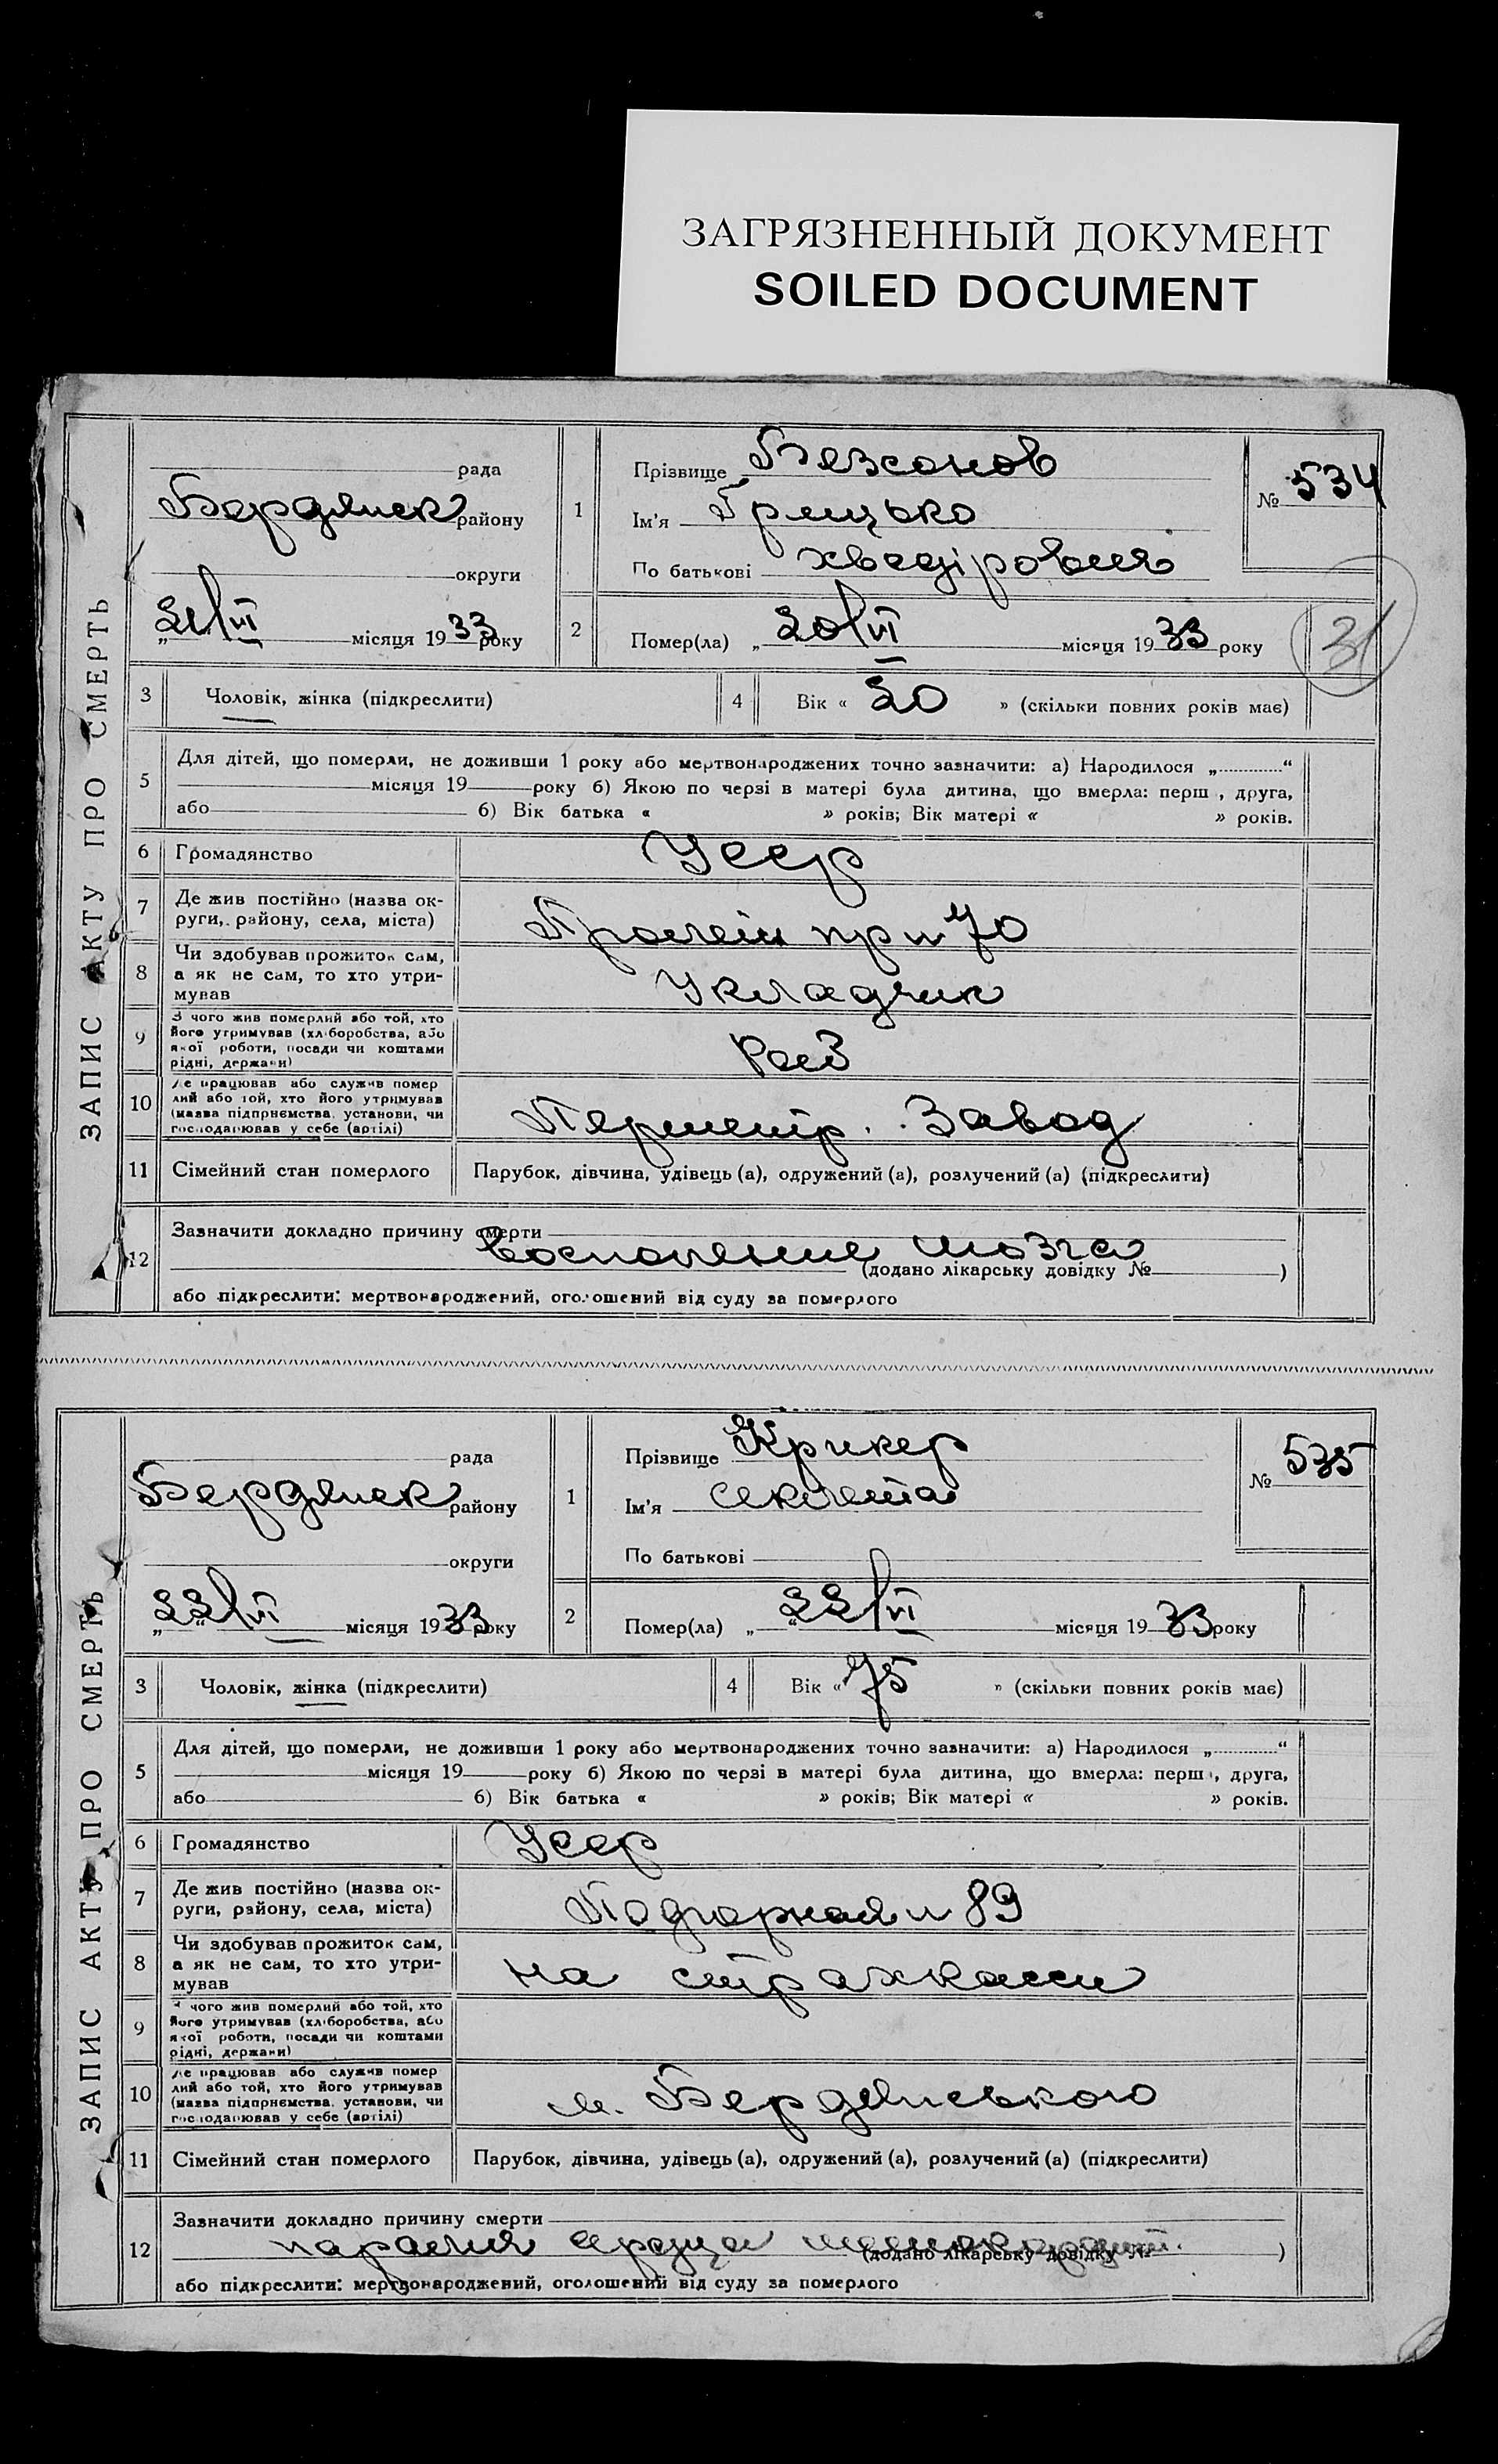 ЗАГРЯЗНЕННЫЙ ДОКУМЕНТ
SOILED DOCUMENT
ЗАПИС АКТУ ПРО СМЕРТЬ
рада
Бердянск району
округи
„21/VI місяця 1933 року
1
Прізвище Безсонов
Ім'я Грицько
По батькові Хведірович
№ 534
2
Помер(ла) „20/VI місяця 1933 року
31
3 Чоловік, жінка (підкреслити)
4 Вік « 20 » (скільки повних років має)
5 Для дітей, що померли, не доживши 1 року або мертвонароджених точно зазначити: а) Народилося „ “
місяця 19 року б) Якою по черзі в матері була дитина, що вмерла: перша, друга,
або б) Вік батька « » років; Вік матері « » років.
6 Громадянство Усср
7 Де жив постійно (назва ок-
руги, району, села, міста)
70
8 Чи здобував прожиток сам,
а як не сам, то хто утри-
мував
Укладчик
9 З чого жив померлий або той, хто
його утримував (хліборобства, або
якої роботи, посади чи коштами
рідні, держави)
10 Де працював або служив помер
лий або той, хто його утримував
(назва підприємства, установи, чи
господарював у себе (артілі)
Завод
11 Сімейний стан померлого Парубок, дівчина, удівець (а), одружений (а), розлучений (а) (підкреслити)
12 Зазначити докладно причину смерти
воспаление мозга
(додано лікарську довідку № )
або підкреслити: мертвонароджений, оголошений від суду за померлого
ЗАПИС АКТУ ПРО СМЕРТЬ
рада
Бердянск району
округи
„22/VI місяця 1933 року
1
Прізвище Крикер
Ім'я
По батькові
№ 535
2
Помер(ла) „22/VI місяця 1933 року
3 Чоловік, жінка (підкреслити)
4 Вік « 75 » (скільки повних років має)
5 Для дітей, що померли, не доживши 1 року або мертвонароджених точно зазначити: а) Народилося „ “
місяця 19 року б) Якою по черзі в матері була дитина, що вмерла: перша, друга,
або б) Вік батька « » років; Вік матері « » років.
6 Громадянство Усср
7 Де жив постійно (назва ок-
руги, району, села, міста)
Подгорная 89
8 Чи здобував прожиток сам,
а як не сам, то хто утри-
мував
на страхкассы
9 З чого жив померлий або той, хто
його утримував (хліборобства, або
якої роботи, посади чи коштами
рідні, держави)
10 Де працював або служив помер
лий або той, хто його утримував
(назва підприємства, установи, чи
господарював у себе (артілі)
м. Бердянського
11 Сімейний стан померлого Парубок, дівчина, удівець (а), одружений (а), розлучений (а) (підкреслити)
12 Зазначити докладно причину смерти
паралич сердца
(додано лікарську довідку № )
або підкреслити: мертвонароджений, оголошений від суду за померлого